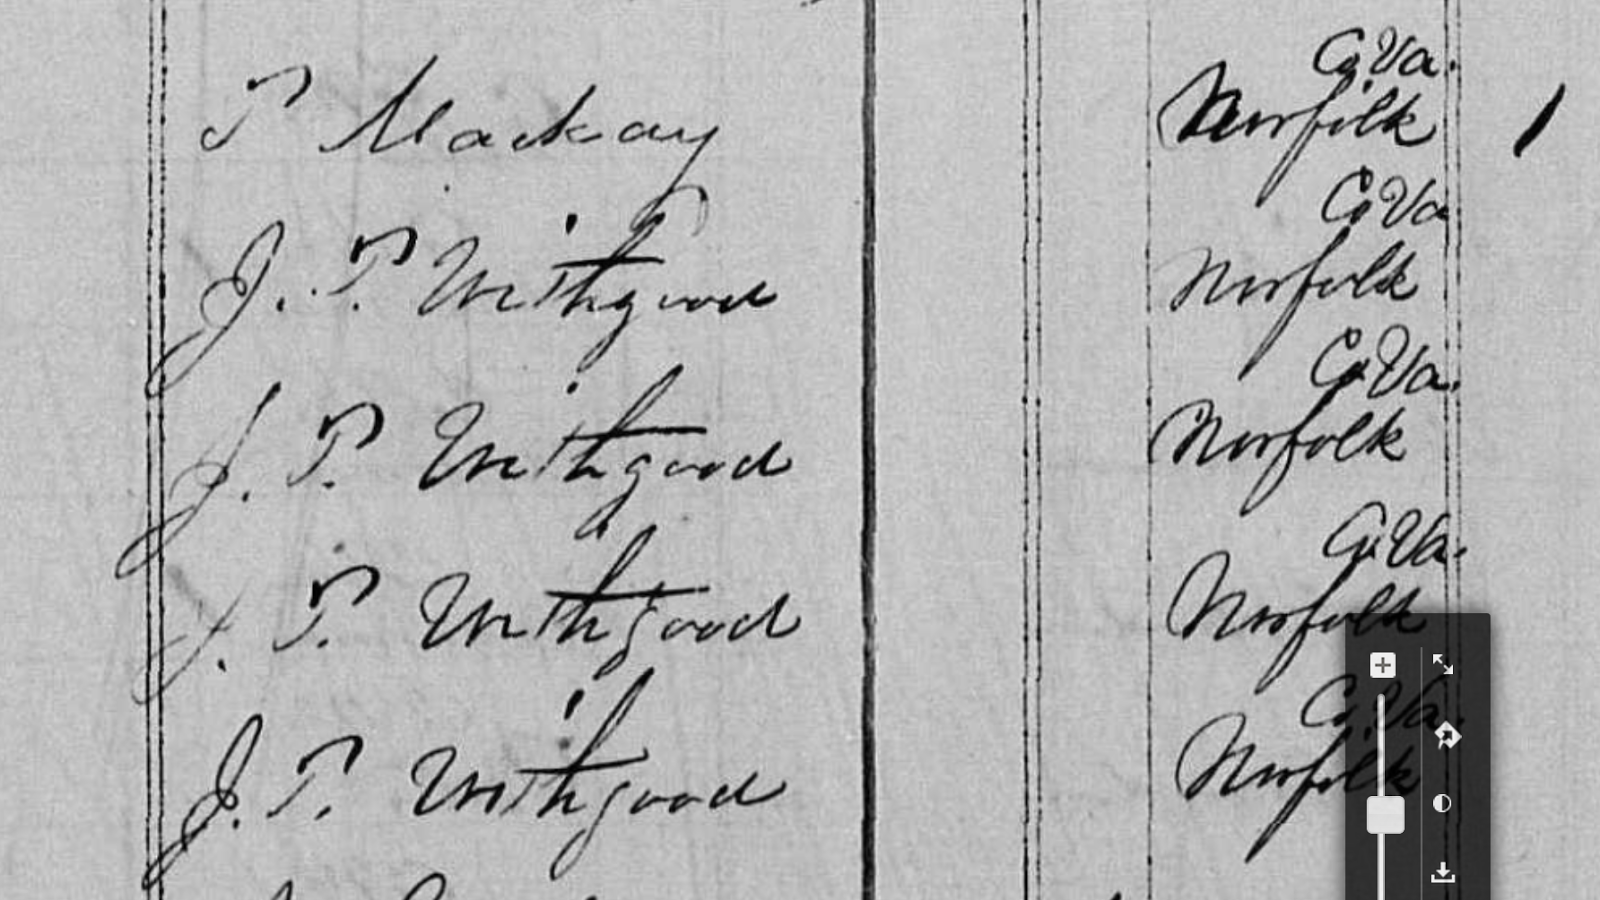 Co Va.
T Mackay Norfolk
Co Va
J. T. Withgood Norfolk
Co Va.
J. T. Withgood Norfolk
Co Va.
J. T. Withgood Norfolk
Co Va.
J. T. Withgood Norfolk